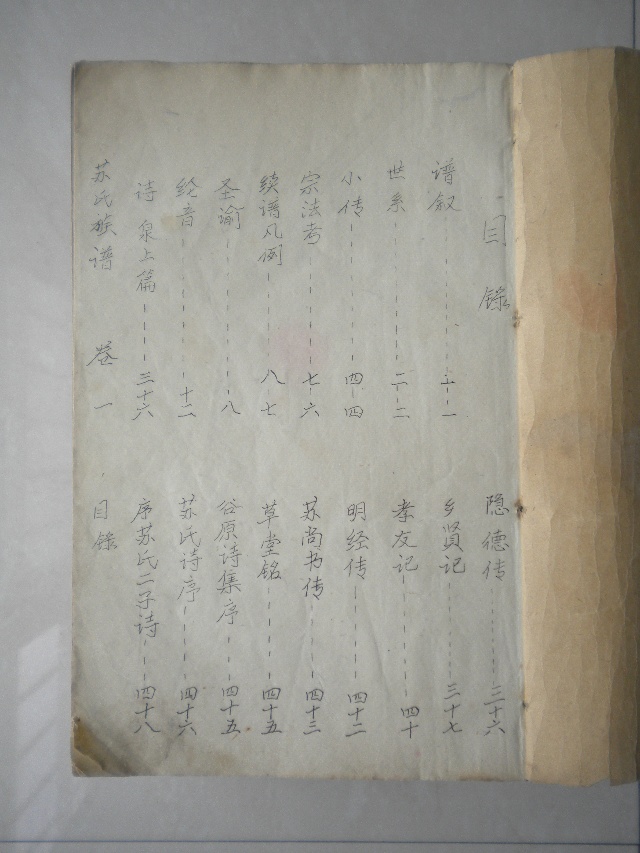 目錄
谱叙------一
世系------二-二
小传------四-四
宗法考------七-六
续谱凡例------八-七
圣谕------八
纶音------十二
诗 泉上篇------三十六
苏氏族谱 卷一
隐德传------三十六
乡贤记------三十七
孝友记------四十
明经传------四十二
苏尚书传------四十三
草堂铭------四十五
谷原诗集序------四十五
苏氏诗序------四十六
序苏氏二子诗------四十八
目錄